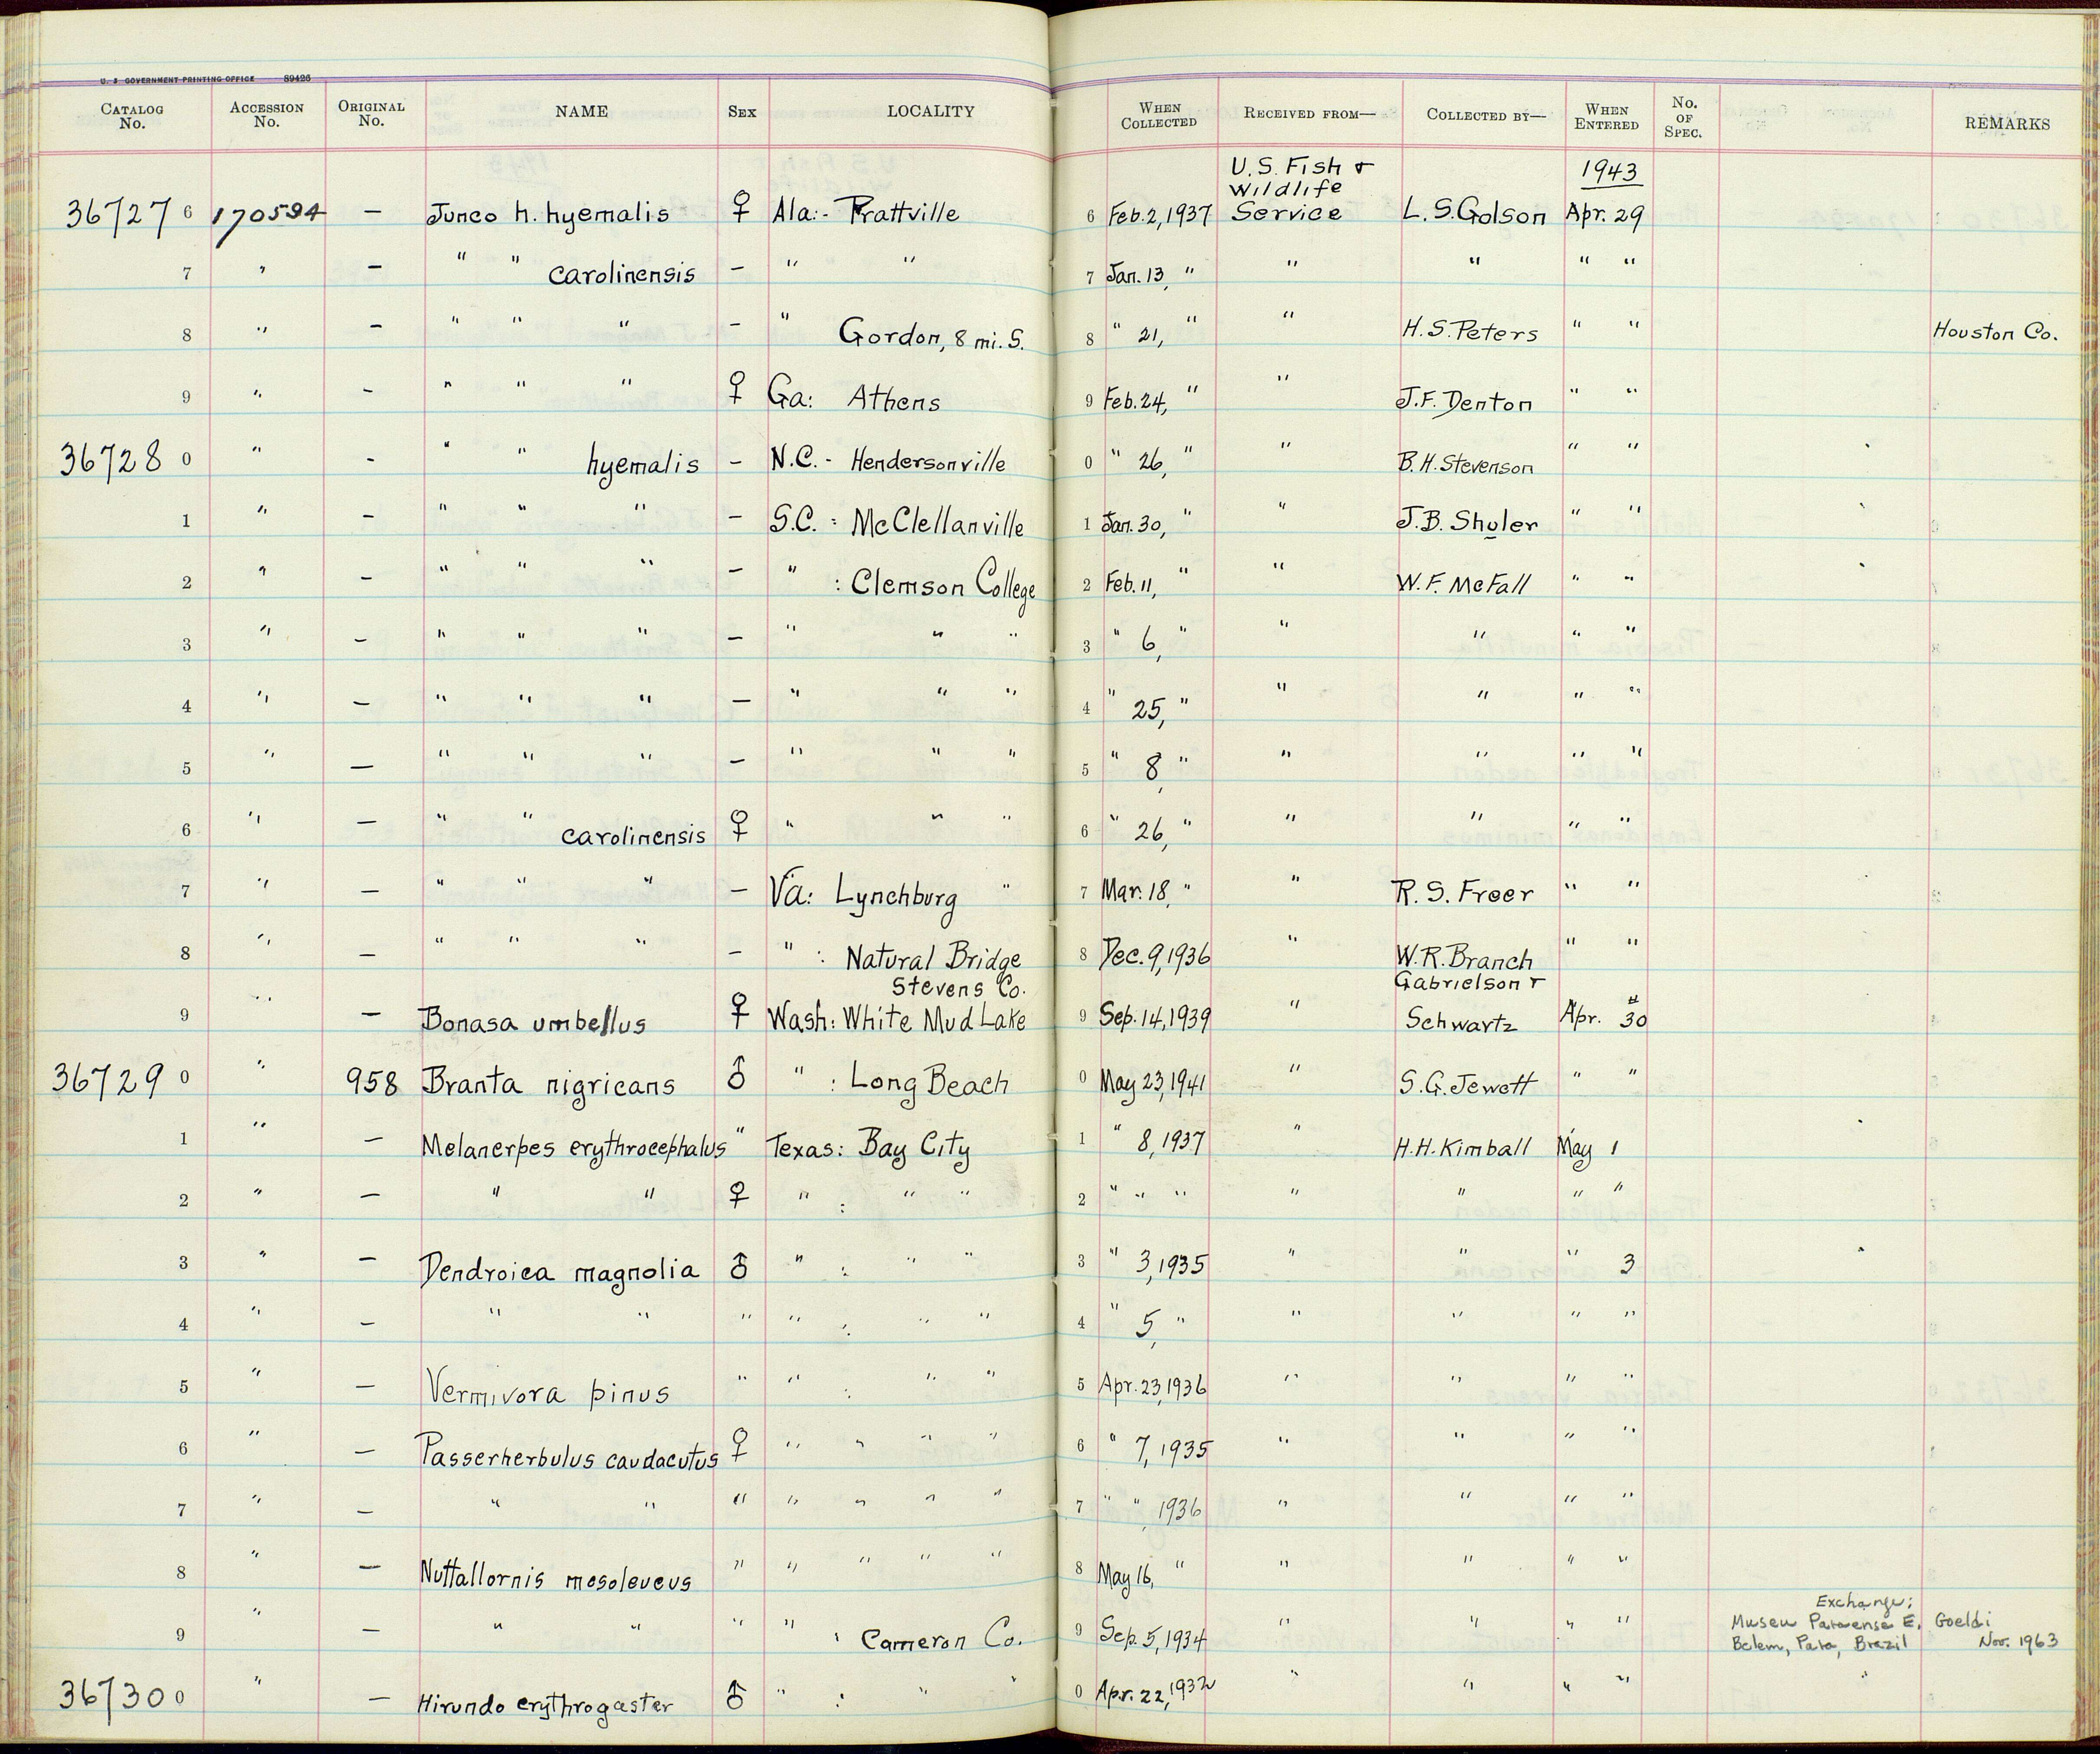 U. S. GOVERNMENT PRINTING OFFICE 89426
CATALOG No. ACCESSION No. ORIGINAL No. NAME SEX LOCALITY WHEN COLLECTED RECEIVED FROM— COLLECTED BY— WHEN ENTERED No. OF SPEC. REMARKS
U.S. Fish & Wildlife 1943
36727 6 170594 — Junco h. hyemalis ♀ Ala:- Prattville 6 Feb. 2, 1937 Service L.S. Golson Apr. 29
7 " — " " carolinensis — " " 7 Jan. 13, " " " " "
8 " — " " " — " Gordon, 8 mi. S. 8 " 21, " " H.S. Peters " " Houston Co.
9 " — " " " ♀ Ga: Athens 9 Feb. 24, " " J.F. Denton " "
36728 0 " — " " hyemalis — N.C.- Hendersonville 0 " 26, " " B.H. Stevenson " "
1 " — " " " — S.C. : McClellanville 1 Jan. 30, " " J.B. Shuler " "
2 " — " " " — " : Clemson College 2 Feb. 11, " " W.F. McFall " "
3 " — " " " — " " " 3 " 6, " " " " "
4 " — " " " — " " " 4 " 25, " " " " "
5 " — " " " — " " " 5 " 8, " " " " "
6 " — " " carolinensis ♀ " " " 6 " 26, " " " " "
7 " — " " " — Va: Lynchburg " 7 Mar. 18, " " R.S. Freer " "
8 " — " " " — " : Natural Bridge 8 Dec. 9, 1936 " W.R. Branch " "
Stevens Co. Gabrielson &
9 " — Bonasa umbellus ♀ Wash: White Mud Lake 9 Sep. 14, 1939 " Schwartz Apr. 30
36729 0 " 958 Branta nigricans ♂ " : Long Beach 0 May 23, 1941 " S.G. Jewett " "
1 " — Melanerpes erythrocephalus " Texas: Bay City 1 " 8, 1937 " H.H. Kimball May 1
2 " — " " ♀ " : " " 2 " " " " " " "
3 " — Dendroica magnolia ♂ " : " " 3 " 3, 1935 " " " 3
4 " — " " " " : " " 4 " 5, " " " " "
5 " — Vermivora pinus " " : " " 5 Apr. 23, 1936 " " " "
6 " — Passerherbulus caudacutus ♀ " " " " 6 " 7, 1935 " " " "
7 " — " " " " " " " 7 " ", 1936 " " " "
8 " — Nuttallornis mesoleucus " " " " " 8 May 16, " " " " "
Exchange:
Museu Paraense E. Goeldi
9 " — " " " " : Cameron Co. 9 Sep. 5, 1934 " " " " Belem, Para, Brazil Nov. 1963
36730 0 " — Hirundo erythrogaster ♂ " : " " 0 Apr. 22, 1932 " " " " "